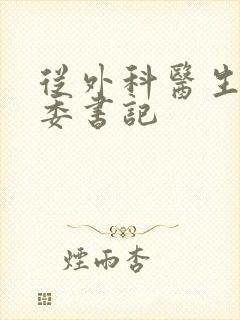 從外科醫生
委書記
煙雨杏